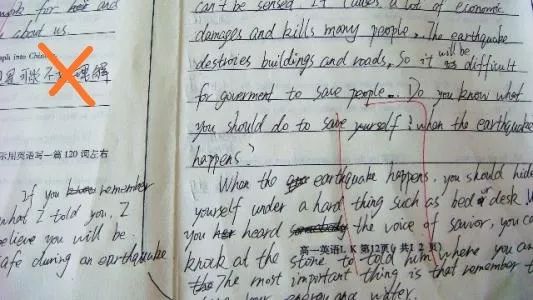 about us
示用英语写一篇120词左右
If you remember
what I told you, I
believe you will be
safe during an earthquake
can't be sensed. It causes a lot of economic
damages and kills many people. The earthquake
destroies buildings and roads, so it will be difficult
for goverment to save people. Do you know what
you should do to save yourself when the earthquake
happens?
When the earthquake happens, you should hide
yourself under a hard thing such as bed or desk.
you heard the voice of savior, you can
高一英语L K 第12页(共12页)
knock at the stone to told him where you are
The most important thing is that remember t
your energy and water.